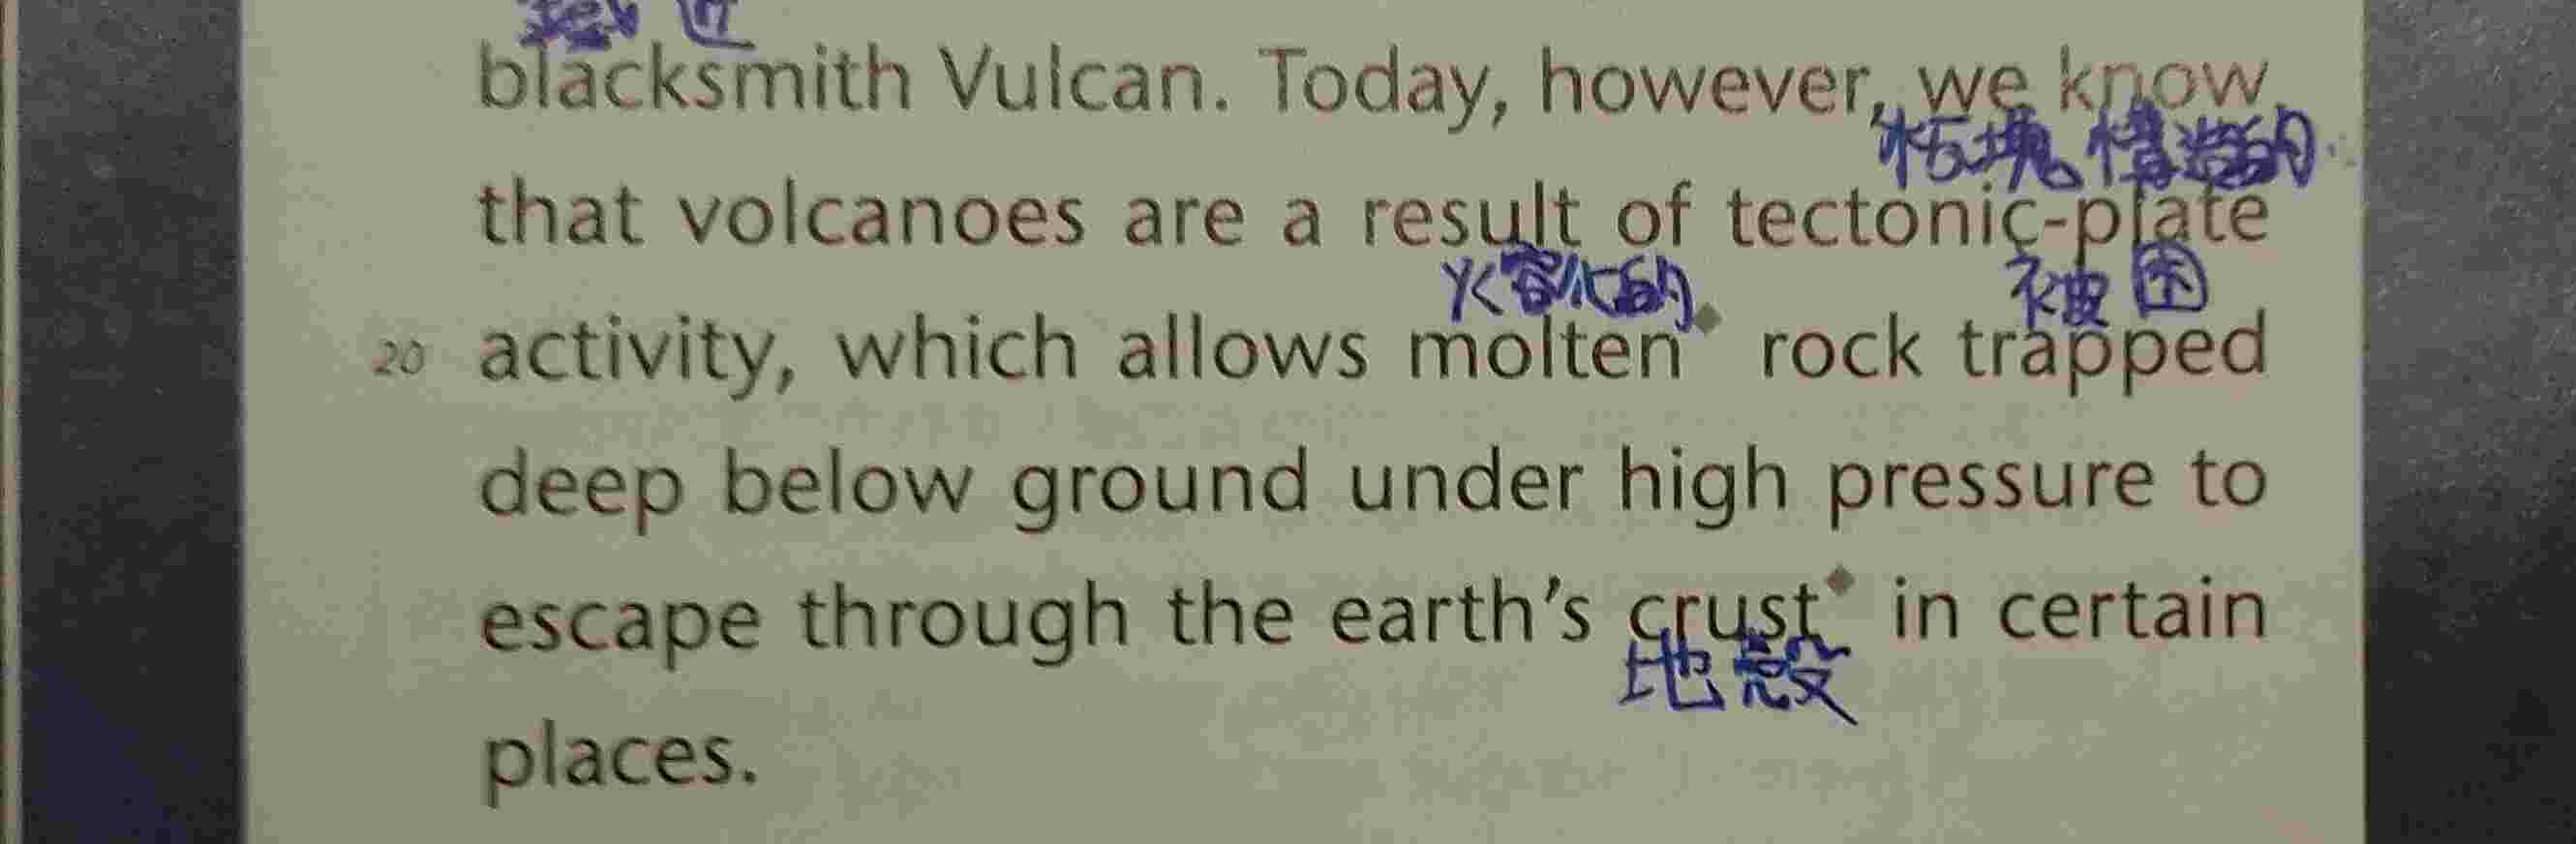 鐵匠
blacksmith Vulcan. Today, however, we know
板塊構造的
that volcanoes are a result of tectonic-plate
熔化的 被困
20 activity, which allows molten◆ rock trapped
deep below ground under high pressure to
escape through the earth's crust◆ in certain
地殼
places.